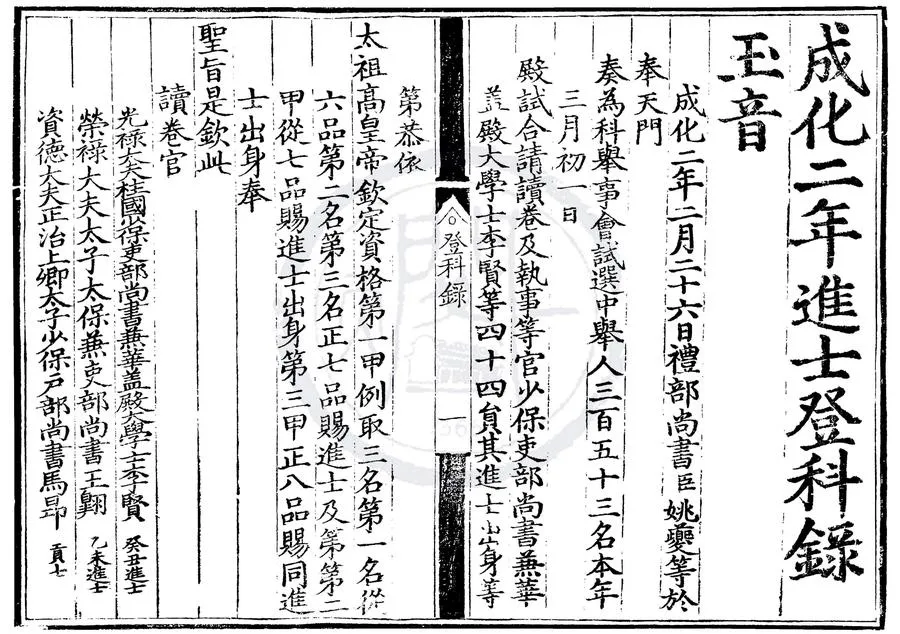 成化二年進士登科錄
玉音
成化二年二月二十六日禮部尚書臣姚夔等於
奉天門
奏為科舉事會試選中舉人三百五十三名本年
三月初一日
殿試合請讀卷及執事等官少保吏部尚書兼華
蓋殿大學士李賢等四十四員其進士出身等
登科錄
一
第恭依
太祖高皇帝欽定資格第一甲例取三名第一名從
六品第二名第三名正七品賜進士及第第二
甲從七品賜進士出身第三甲正八品賜同進
士出身奉
聖旨是欽此
讀卷官
光祿大夫柱國少保吏部尚書兼華蓋殿大學士李賢 癸丑進士
榮祿大夫太子太保兼吏部尚書王翺 乙未進士
資德大夫正治上卿太子少保戶部尚書馬昂 貢士